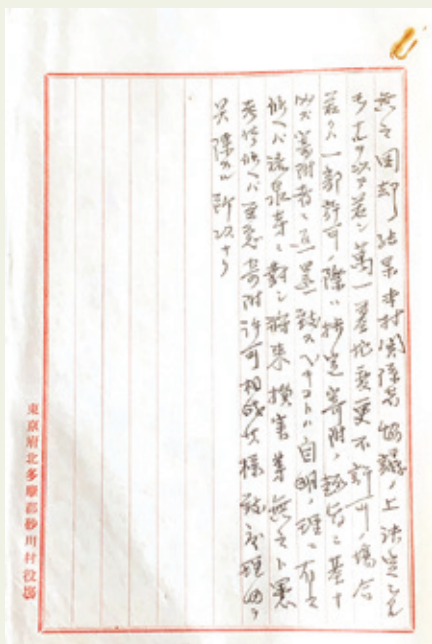 無之回却ノ結果本村関係者協議ノ上決定シタ
ルモノ以テ若シ萬一墓地変更不許可ノ場合
若クハ一部許可ノ際ハ指定寄附ノ趣旨ニ基キ
寄附者ニ返還致スベキコトハ自明ノ理ニ有之
候ヘバ流泉寺ニ対シ将来損害等無之ト思
考仕候ヘバ至急寄附許可相成候様致度理由ヲ
具陳スル所以ナリ
東京府北多摩郡砂川村役場